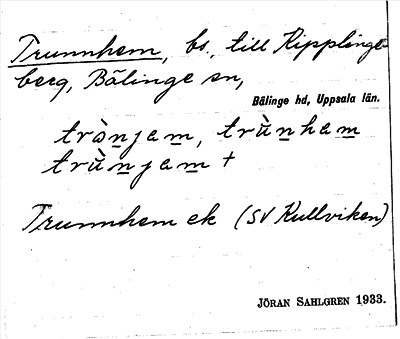 Trunnhem, bs., till Kipplinge-
berg, Bälinge sn,
Bälinge hd, Uppsala län.
trὸn̲jam̲, trùn̲ham̲
trùn̲jam̲ +
Trunnhem ek (SV Kullviken)
JÖRAN SAHLGREN 1933.